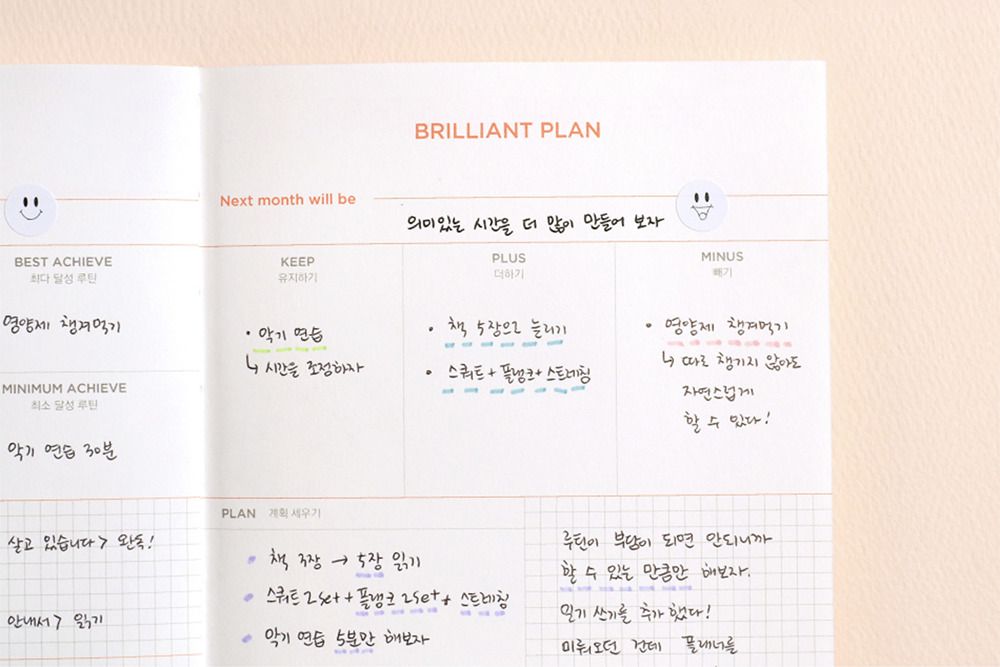 BEST ACHIEVE
최다 달성 루틴
영양제 챙겨먹기
MINIMUM ACHIEVE
최소 달성 루틴
악기 연습 30분
살고 있습니다> 완독!
안내서> 읽기
BRILLIANT PLAN
Next month will be
의미있는 시간을 더 많이 만들어 보자
KEEP
유지하기
• 악기 연습
↳ 시간을 조정하자
PLUS
더하기
• 책 5장으로 늘리기
• 스쿼트 + 플랭크 + 스트레칭
MINUS
빼기
• 영양제 챙겨먹기
↳ 따로 챙기지 않아도
자연스럽게
할 수 있다!
PLAN 계획 세우기
책 3장 → 5장 읽기
스쿼트 2set + 플랭크 2set + 스트레칭
악기 연습 5분만 해보자
루틴이 부담이 되면 안되니까
할 수 있는 만큼만 해보자.
일기 쓰기를 추가했다!
미뤄오던 건데 플래너를